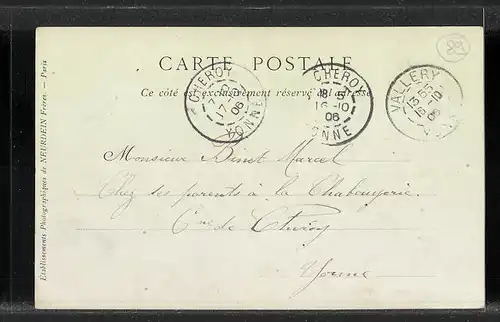 89
CARTE POSTALE
Ce côté est exclusivement réservé à l'adresse
CHEROY
17
06
YONNE
CHEROY
18 5
16 -10
06
YONNE
VALLERY
16 -10
06
Monsieur Binet Marcel
Chez ses parents à la
Cne de
Yonne
Etablissements Photographiques de NEURDEIN Frères. — Paris